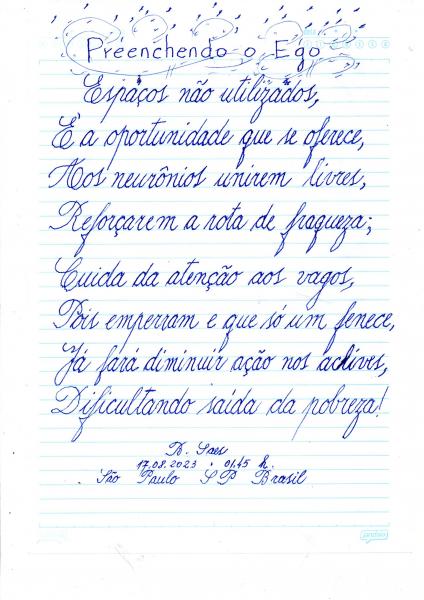 Preenchendo o Ego
Espaços não utilizados,
É a oportunidade que se oferece,
Aos neurônios unirem livres,
Reforçarem a rota de fraqueza;
Cuida da atenção aos vagos,
Pois emperram e que só um fenece,
Já fará diminuir ação nos aclives,
Dificultando saída da pobreza!
B. Saes
17.08.2023 . 01:45 h.
São Paulo SP Brasil
jandaia